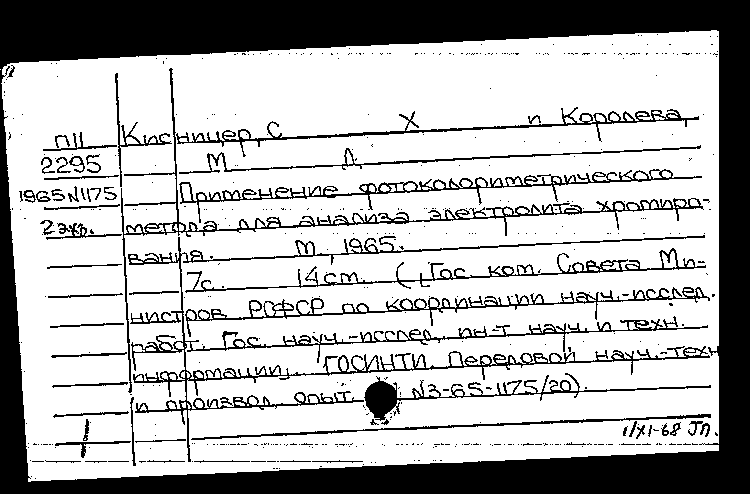 П11 Кисницер, С Х и Королева,
2295 М Д
1965 N1175 Применение фотоколориметрического
2 экз. метода для анализа электролита хромиро-
вания. М, 1965.
7с. 14 см. (Гос. ком. Совета Ми-
нистров РСФСР по координации науч.-исслед.
работ. Гос. науч.-исслед. ин-т науч. и техн.
информации. ГОСИНТИ. Передовой науч.-техн
и производ. опыт. N3-65-1175/20).
1/XI-68 ЈП.